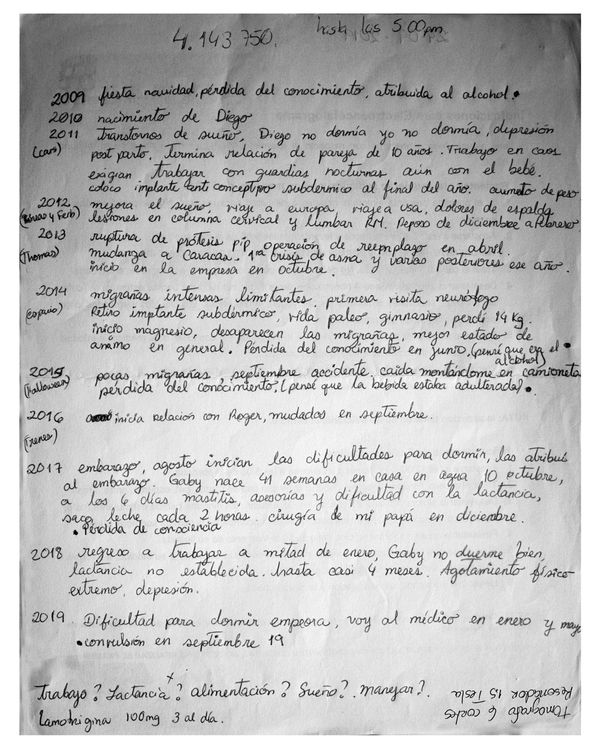 4.143.750.
hasta las 5:00pm.
2009 fiesta navidad, pérdida del conocimiento, atribuida al alcohol.
2010 nacimiento de Diego
2011 transtornos de sueño, Diego no dormía yo no dormía, depresión
(cars) post parto. Termina relación de pareja de 10 años. Trabajo en caos
exigían trabajar con guardias nocturnas aún con el bebé.
coloco implante anticonceptivo subdermico al final del año. aumento de peso
2012 mejora el sueño, viaje a europa, viaje a usa, dolores de espalda
lesiones en columna cervical y lumbar RM. Reposo de diciembre a febrero
2013 ruptura de prótesis pip, operación de reemplazo en abril.
(Thomas) mudanza a Caracas. 1ra crisis de asma y varias posteriores ese año.
inicio en la empresa en octubre.
2014 migrañas intensas limitantes, primera visita neurólogo
(espacio) Retiro implante subdérmico, vida paleo, gimnasio, perdí 14 kg
inicio magnesio, desaparecen las migrañas, mejor estado de
ánimo en general. Pérdida del conocimiento en junio, (pensé que era el alcohol)
2015 pocas migrañas, septiembre accidente, caída montándome en camioneta
(Halloween) pérdida del conocimiento, (pensé que la bebida estaba adulterada).
2016 inicia relación con Roger, mudados en septiembre.
(trenes)
2017 embarazo, agosto inician las dificultades para dormir, las atribuí
al embarazo. Gaby nace 41 semanas en casa en agua 10 octubre,
a los 6 días mastitis, asesorías y dificultad con la lactancia,
saco leche cada 2 horas. cirugía de mi papá en diciembre.
• Pérdida de consciencia
2018 regreso a trabajar a mitad de enero, Gaby no duerme bien,
lactancia no establecida. hasta casi 4 meses. Agotamiento físico
extremo, depresión.
2019. Dificultad para dormir empeora, voy al médico en enero y mayo
• convulsión en septiembre 19
trabajo? Lactancia? x alimentación? Sueño? manejar?
Lamotrigina 100mg 3 al día.
tomógrafo 6 cortes
Resonador 1.5 Tesla